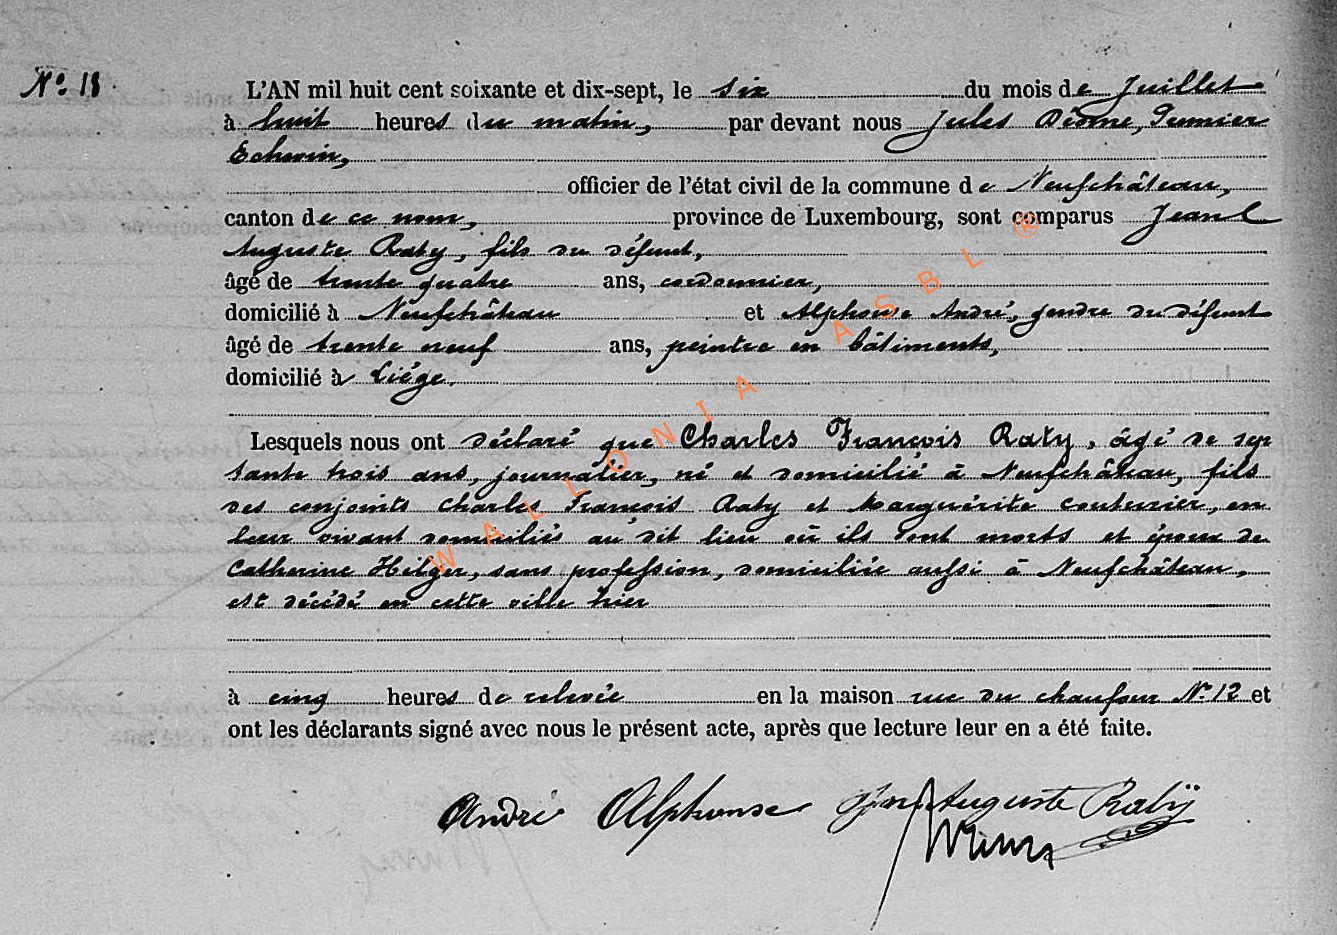 N° 18
L'AN mil huit cent soixante et dix-sept, le six du mois de Juillet
à huit heures du matin, par devant nous Jules Premier
Echevin,
officier de l'état civil de la commune de Neufchâteau,
canton de ce nom, province de Luxembourg, sont comparus Jean
Auguste Raty, fils du défunt,
âgé de trente quatre ans, cordonnier,
domicilié à Neufchâteau et Alphonse André, gendre du défunt
âgé de trente neuf ans, peintre en bâtiments,
domicilié à Liége.
Lesquels nous ont déclaré que Charles François Raty, âgé de sep
tante trois ans, journalier, né et domicilié à Neufchâteau, fils
des conjoints Charles François Raty et Marguérite Couturier, en
leur vivant domiciliés au dit lieu où ils sont morts et époux de
Catherine Hilger, sans profession, domiciliée aussi à Neufchâteau,
est décédé en cette ville hier
à cinq heures de relevée en la maison rue du chaufour N° 12 et
ont les déclarants signé avec nous le présent acte, après que lecture leur en a été faite.
André Alphonse Jean Auguste Raty
WALLONIA ASBL ®